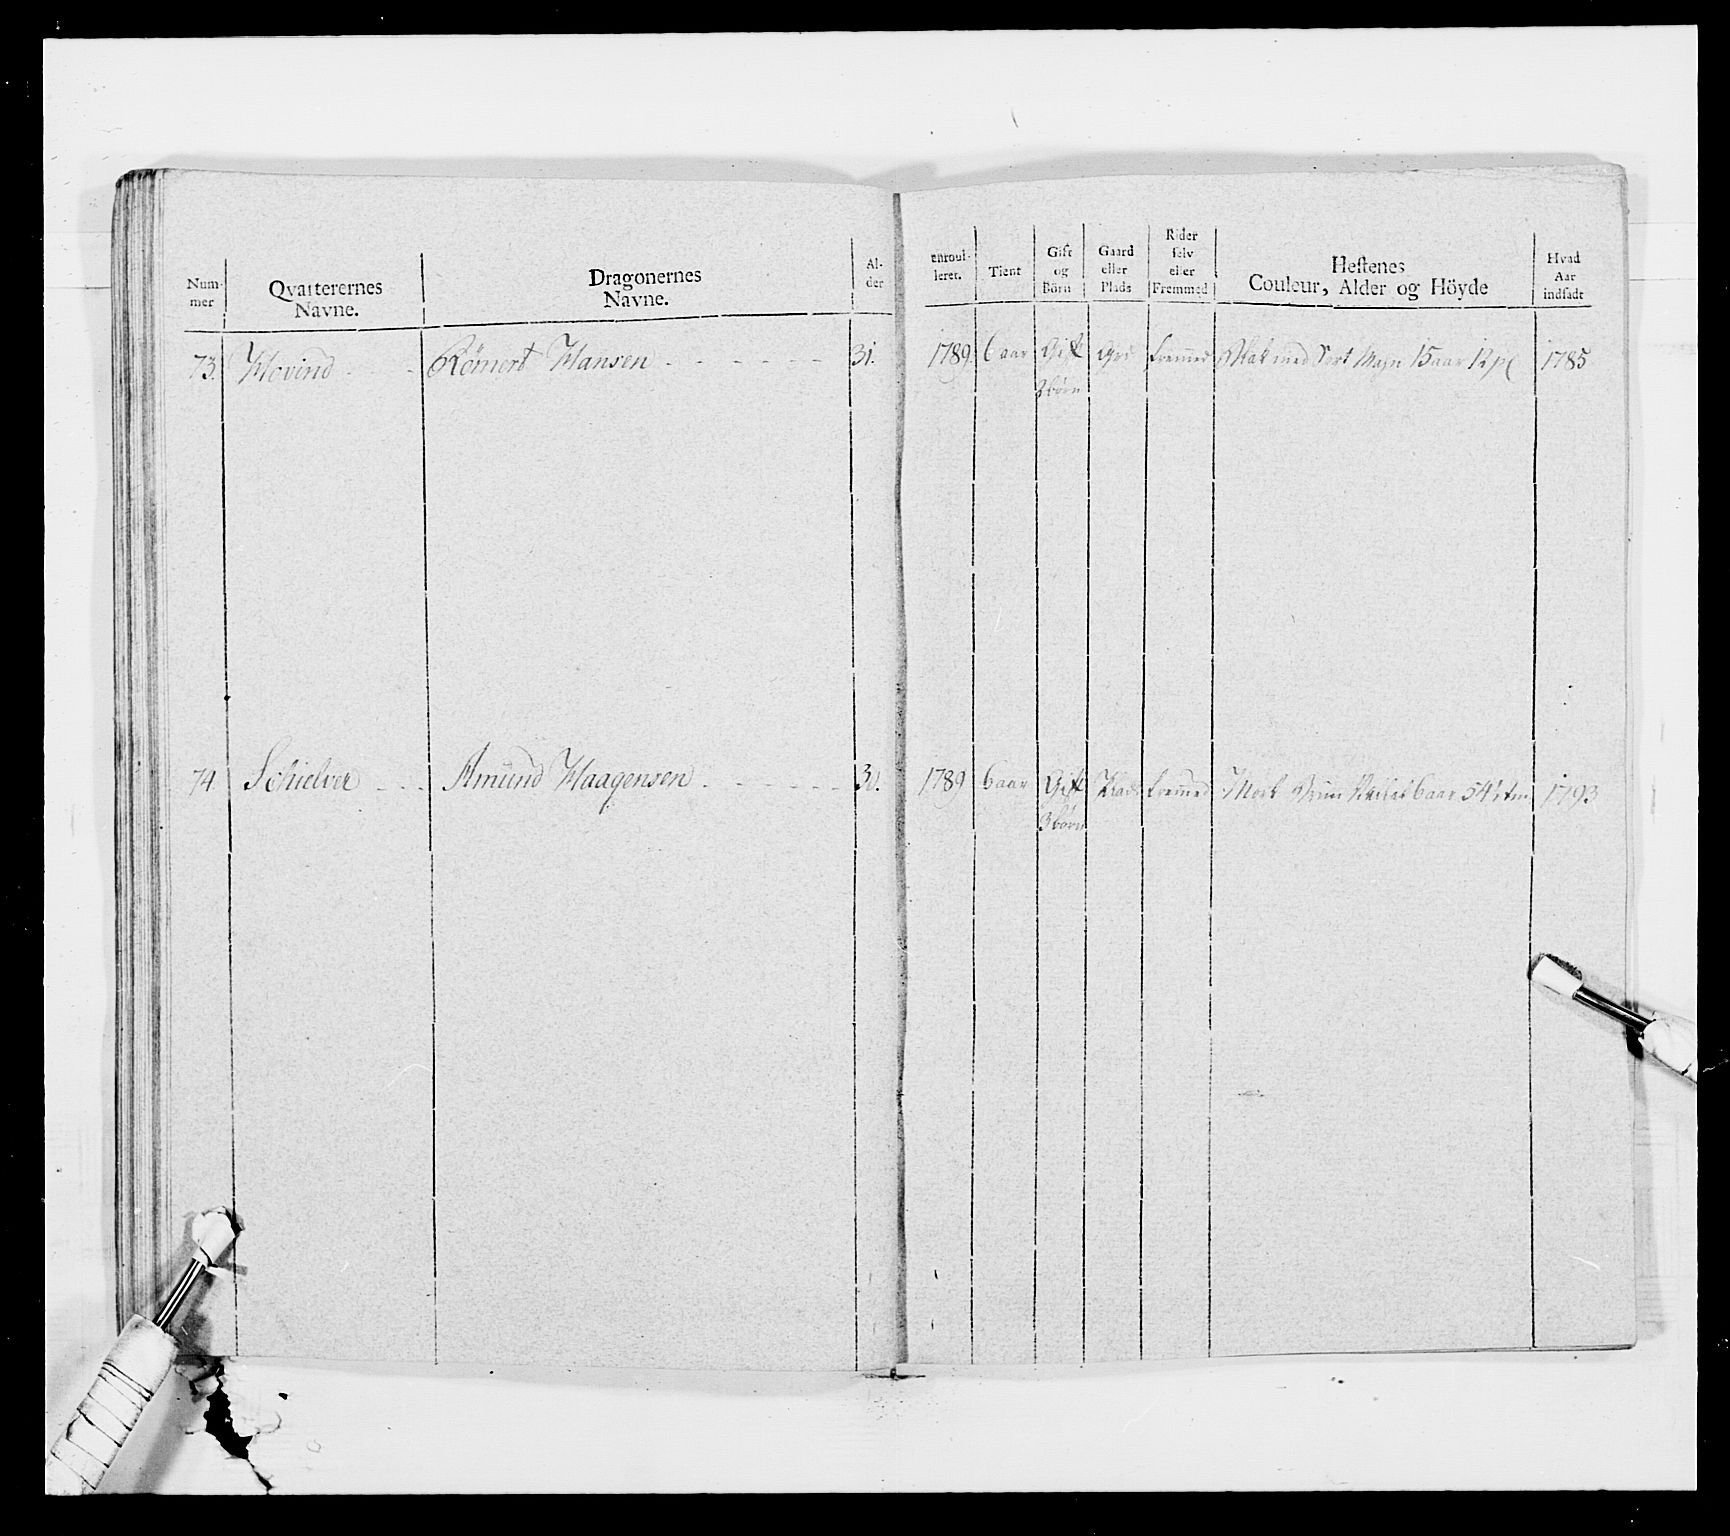 Num-
mer
Qvarterernes
Navne.
Dragonernes
Navne.
Al-
der
enroul-
leret.
Tient
Gift
og
Börn
Gaard
eller
Plads
Rider
selv
eller
Fremmed
Hestenes
Couleur, Alder og Höyde
Hvad
Aar
indsadt
73. Hovind Römert Hansen 31. 1789. 6 aar Gift Grd fremed Blak med Sort Man 15 aar 1785
börn
74 Schielver Amund Haagensen 1789 6 aar Gift Plads fremed Mork Brun 6 aar 1793
3 börn